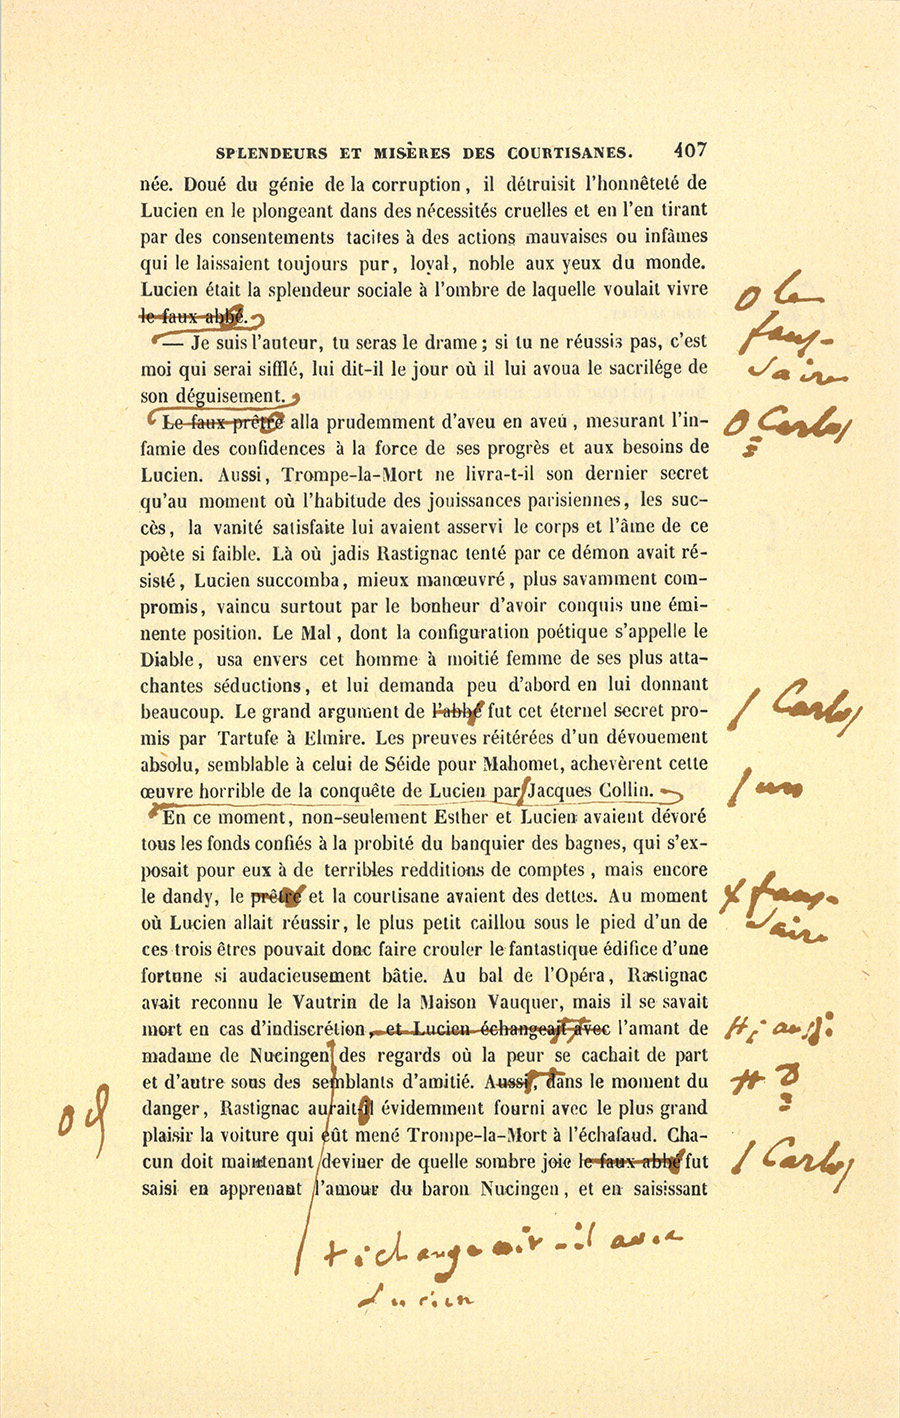 SPLENDEURS ET MISÈRES DES COURTISANES. 407
née. Doué du génie de la corruption, il détruisit l'honnêteté de
Lucien en le plongeant dans des nécessités cruelles et en l'en tirant
par des consentements tacites à des actions mauvaises ou infâmes
qui le laissaient toujours pur, loyal, noble aux yeux du monde.
Lucien était la splendeur sociale à l'ombre de laquelle voulait vivre
le faux abbé.
le
faus-
saire
— Je suis l'auteur, tu seras le drame; si tu ne réussis pas, c'est
moi qui serai sifflé, lui dit-il le jour où il lui avoua le sacrilége de
son déguisement.
Le faux prêtre alla prudemment d'aveu en aveu, mesurant l'in-
Carlos
famie des confidences à la force de ses progrès et aux besoins de
Lucien. Aussi, Trompe-la-Mort ne livra-t-il son dernier secret
qu'au moment où l'habitude des jouissances parisiennes, les suc-
cès, la vanité satisfaite lui avaient asservi le corps et l'âme de ce
poète si faible. Là où jadis Rastignac tenté par ce démon avait ré-
sisté, Lucien succomba, mieux manœuvré, plus savamment com-
promis, vaincu surtout par le bonheur d'avoir conquis une émi-
nente position. Le Mal, dont la configuration poétique s'appelle le
Diable, usa envers cet homme à moitié femme de ses plus atta-
chantes séductions, et lui demanda peu d'abord en lui donnant
beaucoup. Le grand argument de l'abbé fut cet éternel secret pro-
Carlos
mis par Tartufe à Elmire. Les preuves réitérées d'un dévouement
absolu, semblable à celui de Séide pour Mahomet, achevèrent cette
œuvre horrible de la conquête de Lucien par Jacques Collin.
un
En ce moment, non-seulement Esther et Lucien avaient dévoré
tous les fonds confiés à la probité du banquier des bagnes, qui s'ex-
posait pour eux à de terribles redditions de comptes, mais encore
le dandy, le prêtre et la courtisane avaient des dettes. Au moment
faus-
saire
où Lucien allait réussir, le plus petit caillou sous le pied d'un de
ces trois êtres pouvait donc faire crouler le fantastique édifice d'une
fortune si audacieusement bâtie. Au bal de l'Opéra, Rastignac
avait reconnu le Vautrin de la Maison Vauquer, mais il se savait
mort en cas d'indiscrétion, et Lucien échangeait avec l'amant de
; aussi
madame de Nucingen des regards où la peur se cachait de part
et d'autre sous des semblants d'amitié. Aussi, dans le moment du
danger, Rastignac aurait-il évidemment fourni avec le plus grand
plaisir la voiture qui eût mené Trompe-la-Mort à l'échafaud. Cha-
cun doit maintenant deviner de quelle sombre joie le faux abbé fut
Carlos
saisi en apprenant l'amour du baron Nucingen, et en saisissant
échangeait-il avec
Lucien